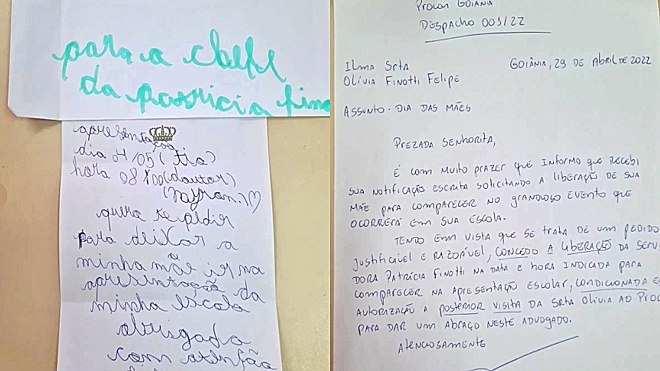 para a
da
apresentação
dia
hora (doutor)
para deixar a
minha mãe ir na
apresentação da
minha escola
obrigada
com atenção
Procon Goiânia
Despacho 003/22
Ilma Srta
Goiânia, 29 de Abril de 2022
Olívia Finotti Felipe
Assunto - Dia das Mães
Prezada Senhorita,
É com muito prazer que informo que recebi
sua notificação escrita solicitando a liberação de sua
mãe para comparecer no grandioso evento que
ocorrerá em sua escola.
Tendo em vista que se trata de um pedido
justificável e razoável, concedo a liberação da servi
dora Patrícia Finotti na data e hora indicada para
comparecer na apresentação escolar, condicionada
autorização a posterior visita da Srta Olívia ao
para dar um abraço neste advogado.
Atenciosamente